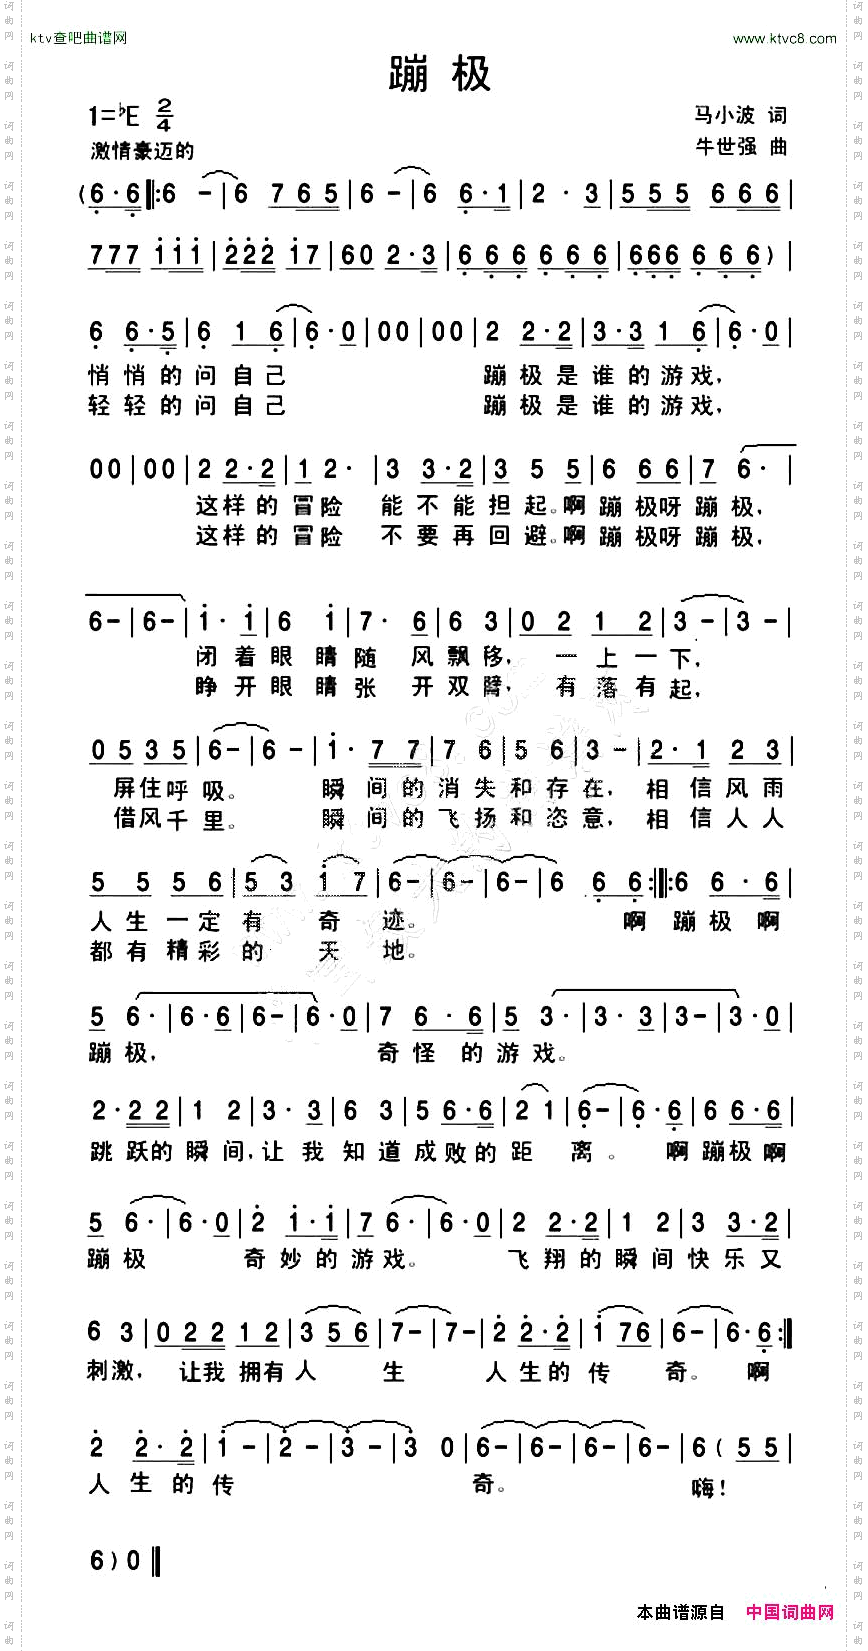 ktv查吧曲谱网 www.ktvc8.com
蹦极
1=♭E 2/4 马小波 词
激情豪迈的 牛世强 曲
(6·6‖:6 -|6 7 6 5|6 -|6 6·1|2·3|5 5 5 6 6 6|
7 7 7 1 1 1|2 2 2 1 7|6 0 2·3|6 6 6 6 6 6|6 6 6 6 6 6)|
6 6·5|6 1 6|6·0|0 0|0 0|2 2·2|3·3 1 6|6·0|
悄悄的问自己 蹦极是谁的游戏,
轻轻的问自己 蹦极是谁的游戏,
0 0|0 0|2 2·2|1 2·|3 3·2|3 5 5|6 6 6|7 6·|
这样的冒险 能不能担起。啊蹦极呀蹦极,
这样的冒险 不要再回避。啊蹦极呀蹦极,
6 -|6 -|1·1|6 1|7·6|6 3|0 2 1 2|3 -|3 -|
闭着眼睛随风飘移, 一上一下,
睁开眼睛张开双臂, 有落有起,
0 5 3 5|6 -|6 -|1·7 7|7 6|5 6|3 -|2·1 2 3|
屏住呼吸。 瞬间的消失和存在, 相信风雨
借风千里。 瞬间的飞扬和恣意, 相信人人
5 5 5 6|5 3 1 7|6 -|6 -|6 -|6 6·6:‖:6 6·6|
人生一定有奇迹。 啊蹦极啊
都有精彩的天地。
5 6·|6·6|6 -|6·0|7 6·6|5 3·|3·3|3 -|3·0|
蹦极, 奇怪的游戏。
2·2 2|1 2|3·3|6 3|5 6·6|2 1|6 -|6·6|6 6·6|
跳跃的瞬间,让我知道成败的距离。 啊蹦极啊
5 6·|6·0|2 1·1|7 6·|6·0|2 2·2|1 2|3 3·2|
蹦极 奇妙的游戏。 飞翔的瞬间快乐又
6 3|0 2 2 1 2|3 5 6|7 -|7 -|2 2·2|1 7 6|6 -|6·6:‖
刺激, 让我拥有人生 人生的传奇。啊
2 2·2|1 -|2 -|3 -|3 0|6 -|6 -|6 -|6 (5 5|
人生的传奇。 嗨!
6)0‖
本曲谱源自 中国词曲网